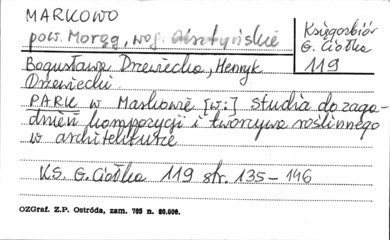 MARKOWO
pow. Morąg, woj. olsztyńskie
Księgozbiór
G. Ciołka
119
Bogusława Drzewiecka, Henryk
Drzewiecki
PARK w Markowie [w:] Studia do zaga-
dnień kompozycji i tworzywa roślinnego
w architekturze
KS. G. Ciołka 119 str. 135-146
OZGraf. Z.P. Ostróda, zam. 705 n. 20.000.